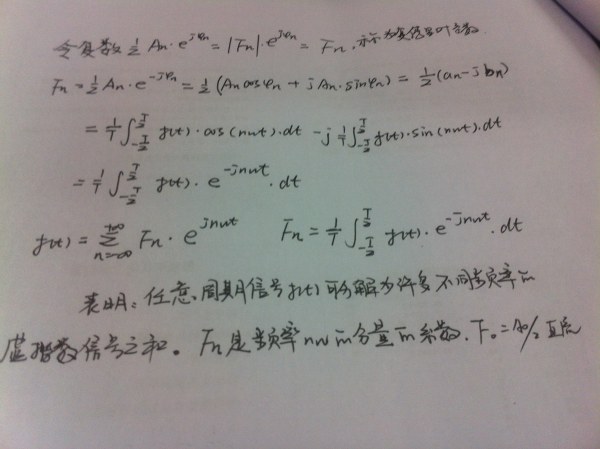 令复数 ½ An·e^{jφn} = |Fn|·e^{jφn} = Fn, 称为复傅里叶系数
Fn = ½ An·e^{-jφn} = ½ (An cosφn + jAn·sinφn) = ½(an-jbn)
= 1/T ∫_{-T/2}^{T/2} f(t)·cos(nωt)·dt - j 1/T ∫_{-T/2}^{T/2} f(t)·sin(nωt)·dt
= 1/T ∫_{-T/2}^{T/2} f(t)·e^{-jnωt}·dt
f(t) = ∑_{n=-∞}^{+∞} Fn·e^{jnωt} Fn = 1/T ∫_{-T/2}^{T/2} f(t)·e^{-jnωt}·dt
表明:任意周期信号f(t)可分解为许多不同频率的
虚指数信号之和。Fn是频率nω的分量的系数, F₀=A₀/2 直流